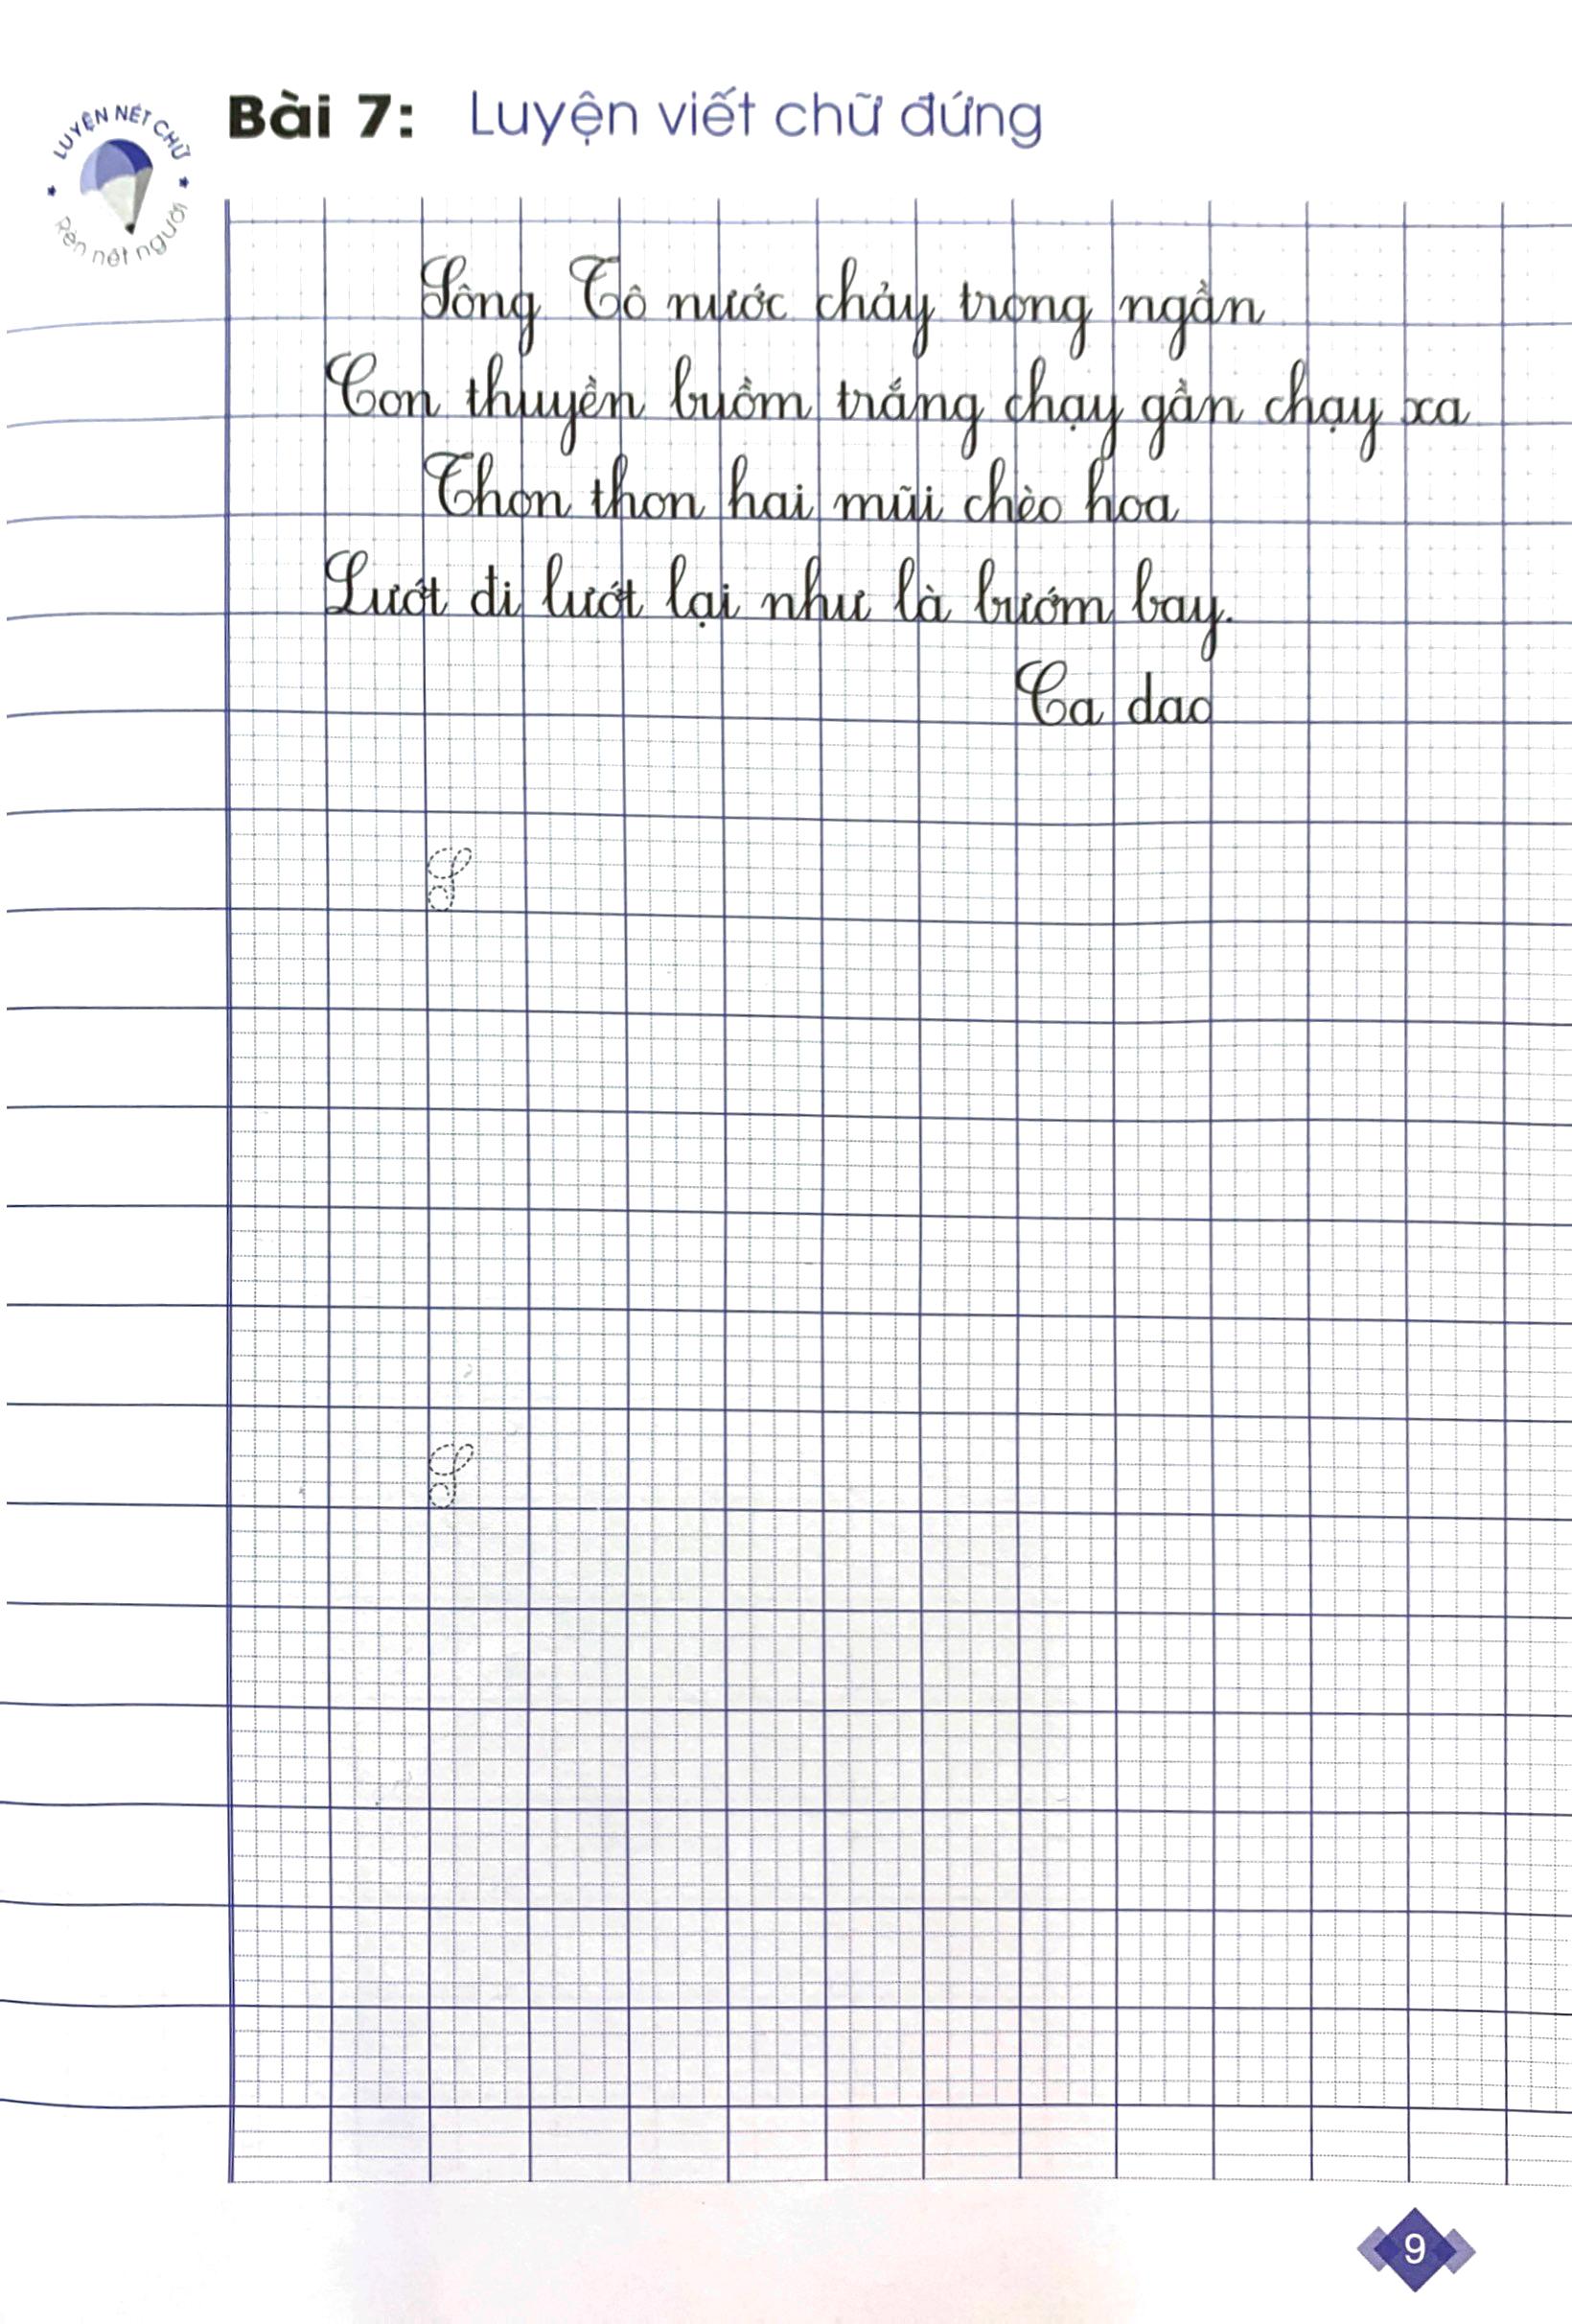 LUYỆN NÉT CHỮ
Rèn nết người
Bài 7: Luyện viết chữ đứng
Sông Tô nước chảy trong ngần
Con thuyền buồm trắng chạy gần chạy xa
Thon thon hai mũi chèo hoa
Lướt đi lướt lại như là bướm bay.
Ca dao
S
S
9